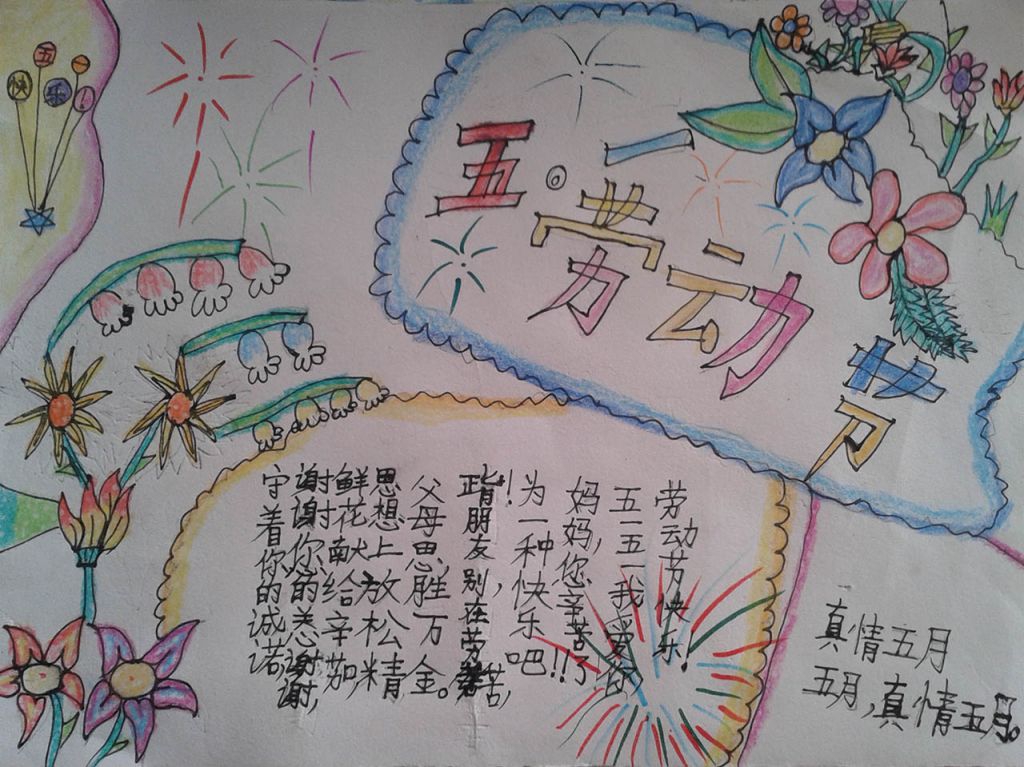 五一快乐!
五·一
劳动节
劳动节快乐!
五一五一我爱的
妈妈,您辛苦了
为一种快乐吧!!
朋友,别在劳苦,
父母恩,胜万金。
思想上放松精
鲜花献给辛茄,
谢谢你的关谢谢,
守着你的诚诺
真情五月
五月,真情五月。